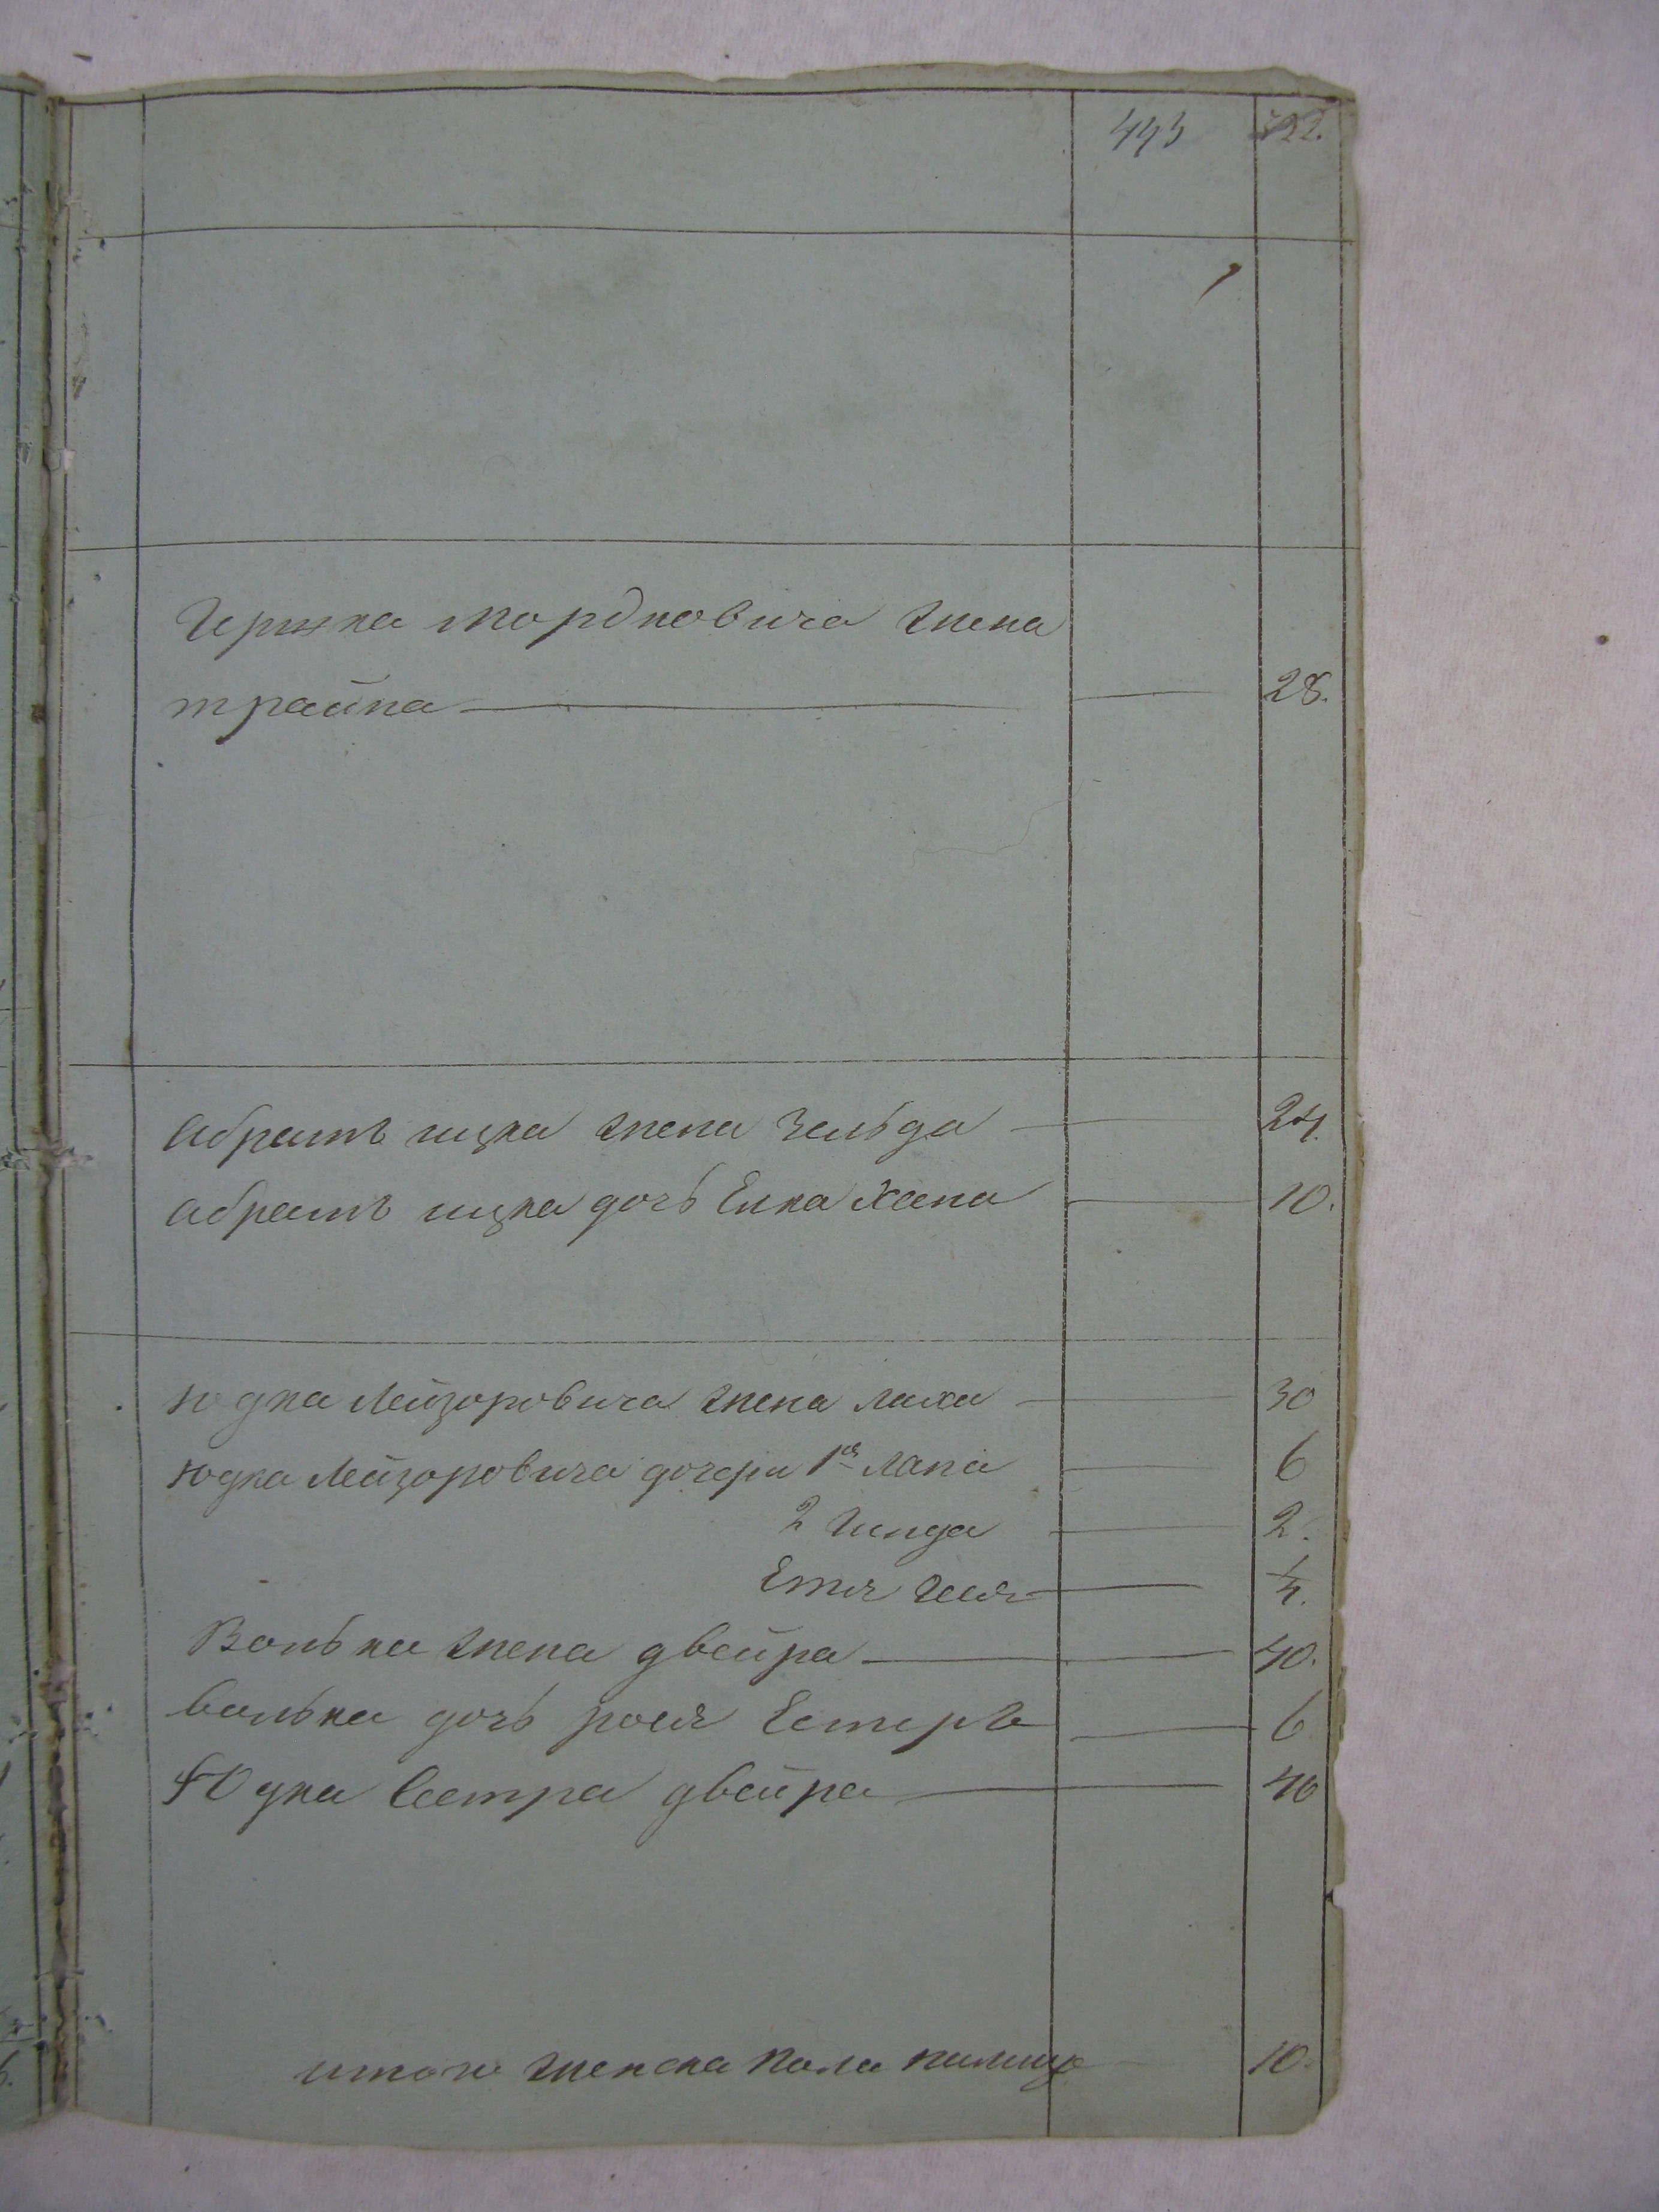 443
Гершка Мордковича жена
трайна 28.
Абрамъ ицка жена Зельда 24.
Абрамъ ицка дочь Елка Хана 10.
Юдка Лейзоровича жена Лиха 30
Юдка Лейзоровича дочери 1я Лана 6
2 Гинда 2.
Етля 1/4.
Волька жена двейра 40.
Волька дочь рося Естеръ 6
Юдка Сестра двейра 40
итого женска пола налицо 10.